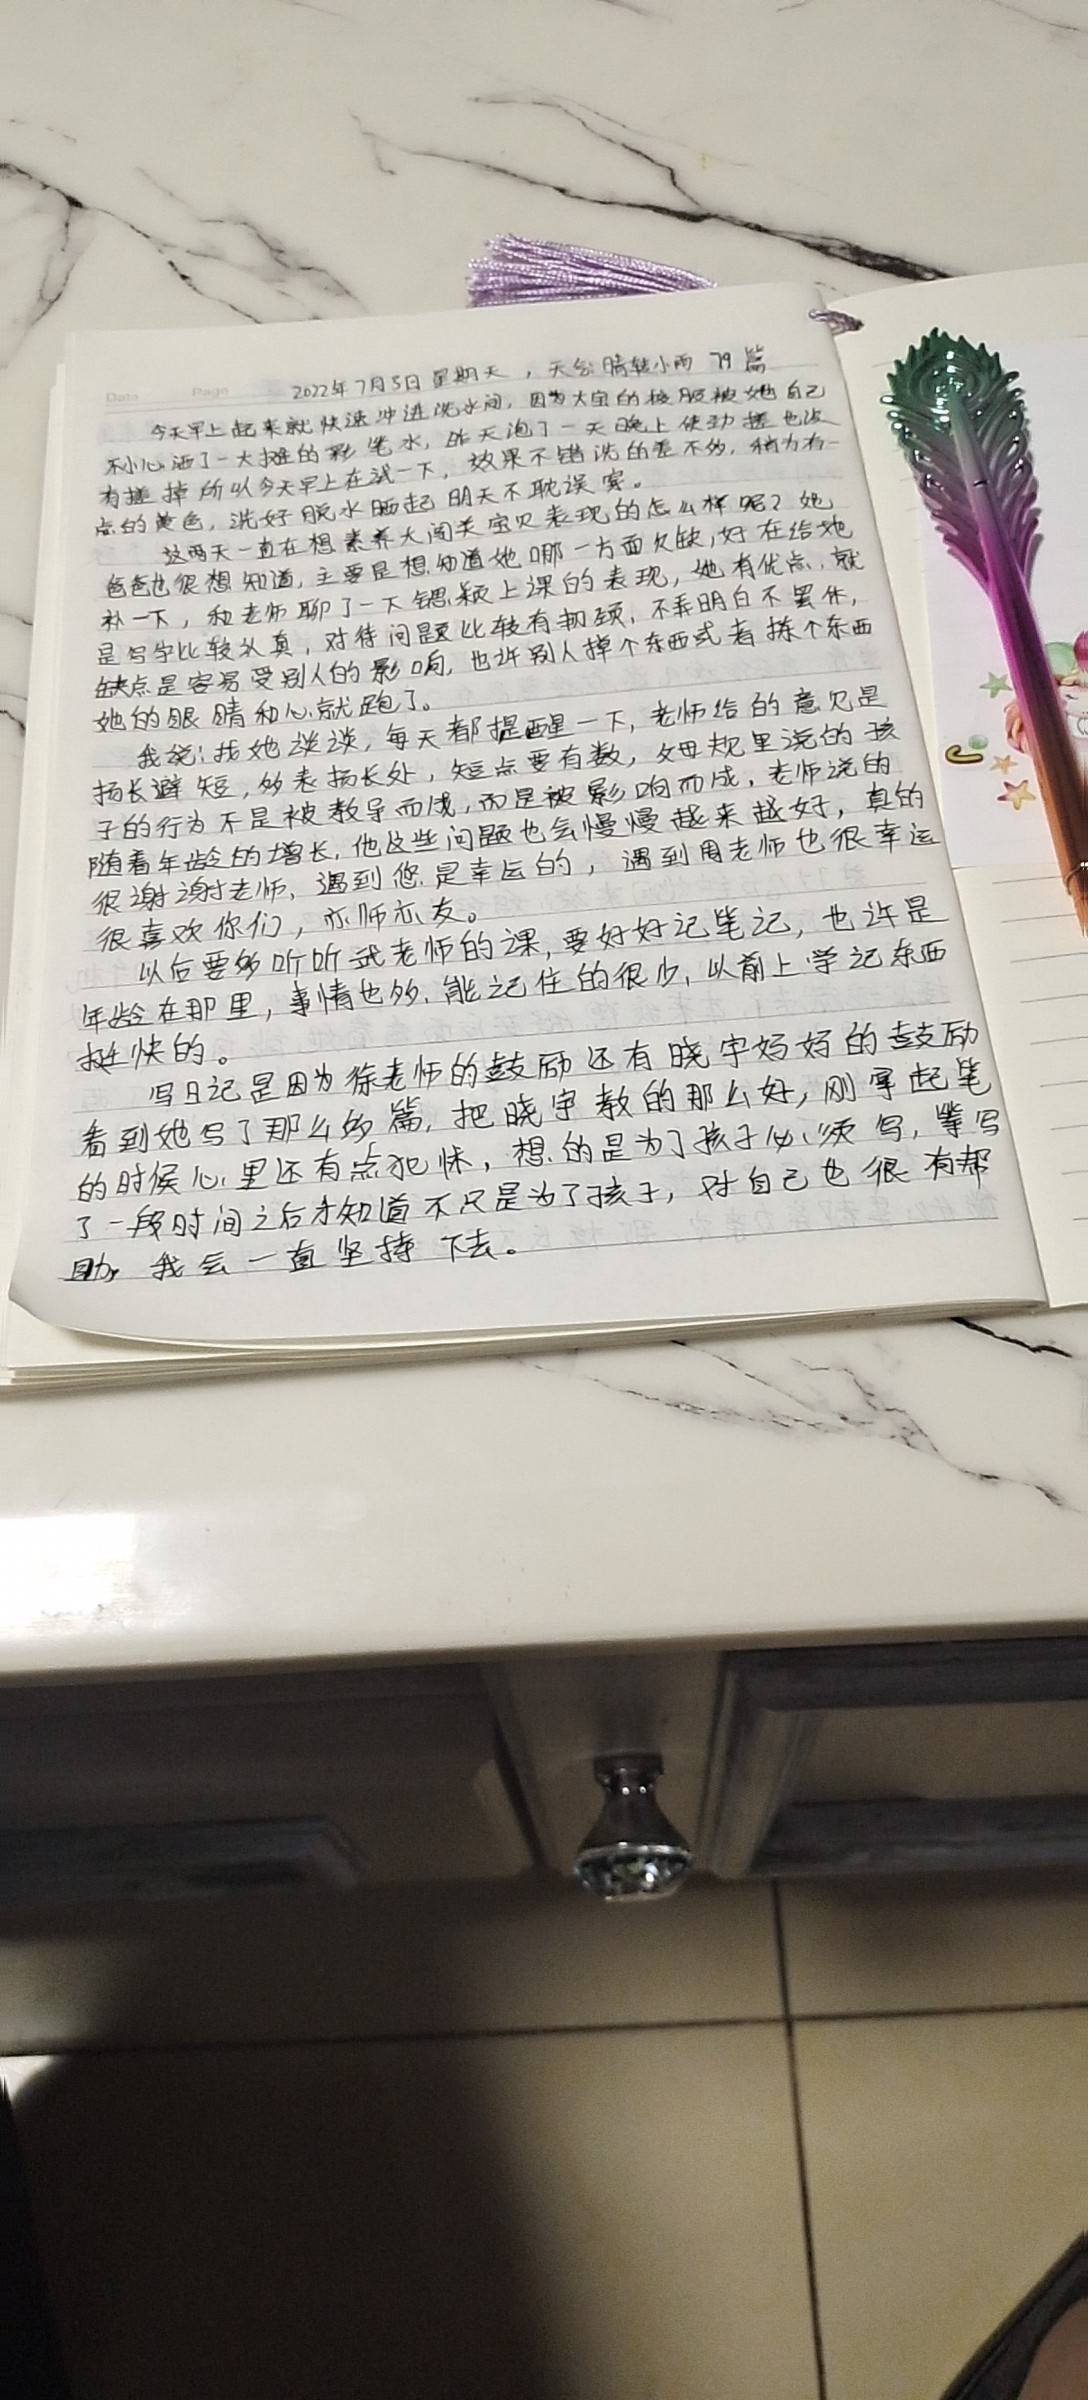 Date Page
2022年7月3日星期天，天气晴转小雨 79篇
今天早上起来就快速冲进洗水间，因为大宝的校服被她自己
不小心洒了一大摊的彩笔水，昨天泡了一天晚上使劲搓也没
有搓掉所以今天早上在试一下，效果不错洗的差不多，稍为有一
点的黄色，洗好脱水晒起明天不耽误穿。
这两天一直在想素养大闯关宝贝表现的怎么样呢？她
爸爸也很想知道，主要是想知道她哪一方面欠缺，好在给她
补一下，和老师聊了一下锶颖上课的表现，她有优点，就
是写字比较认真，对待问题比较有韧颈，不弄明白不罢休，
缺点是容易受别人的影响，也许别人掉个东西或者拣个东西
她的眼睛和心就跑了。
我说：找她谈谈，每天都提醒一下，老师给的意见是
扬长避短，多表扬长处，短点要有数，父母规里说的孩
子的行为不是被教导而成，而是被影响而成，老师说的
随着年龄的增长，他这些问题也会慢慢越来越好，真的
很谢谢老师，遇到您是幸运的，遇到周老师也很幸运
很喜欢你们，亦师亦友。
以后要多听听武老师的课，要好好记笔记，也许是
年龄在那里，事情也多，能记住的很少，以前上学记东西
挺快的。
写日记是因为徐老师的鼓励还有晓宇妈妈的鼓励
看到她写了那么多篇，把晓宇教的那么好，刚拿起笔
的时候心里还有点犯怵，想的是为了孩子必须写，等写
了一段时间之后才知道不只是为了孩子，对自己也很有帮
助，我会一直坚持下去。